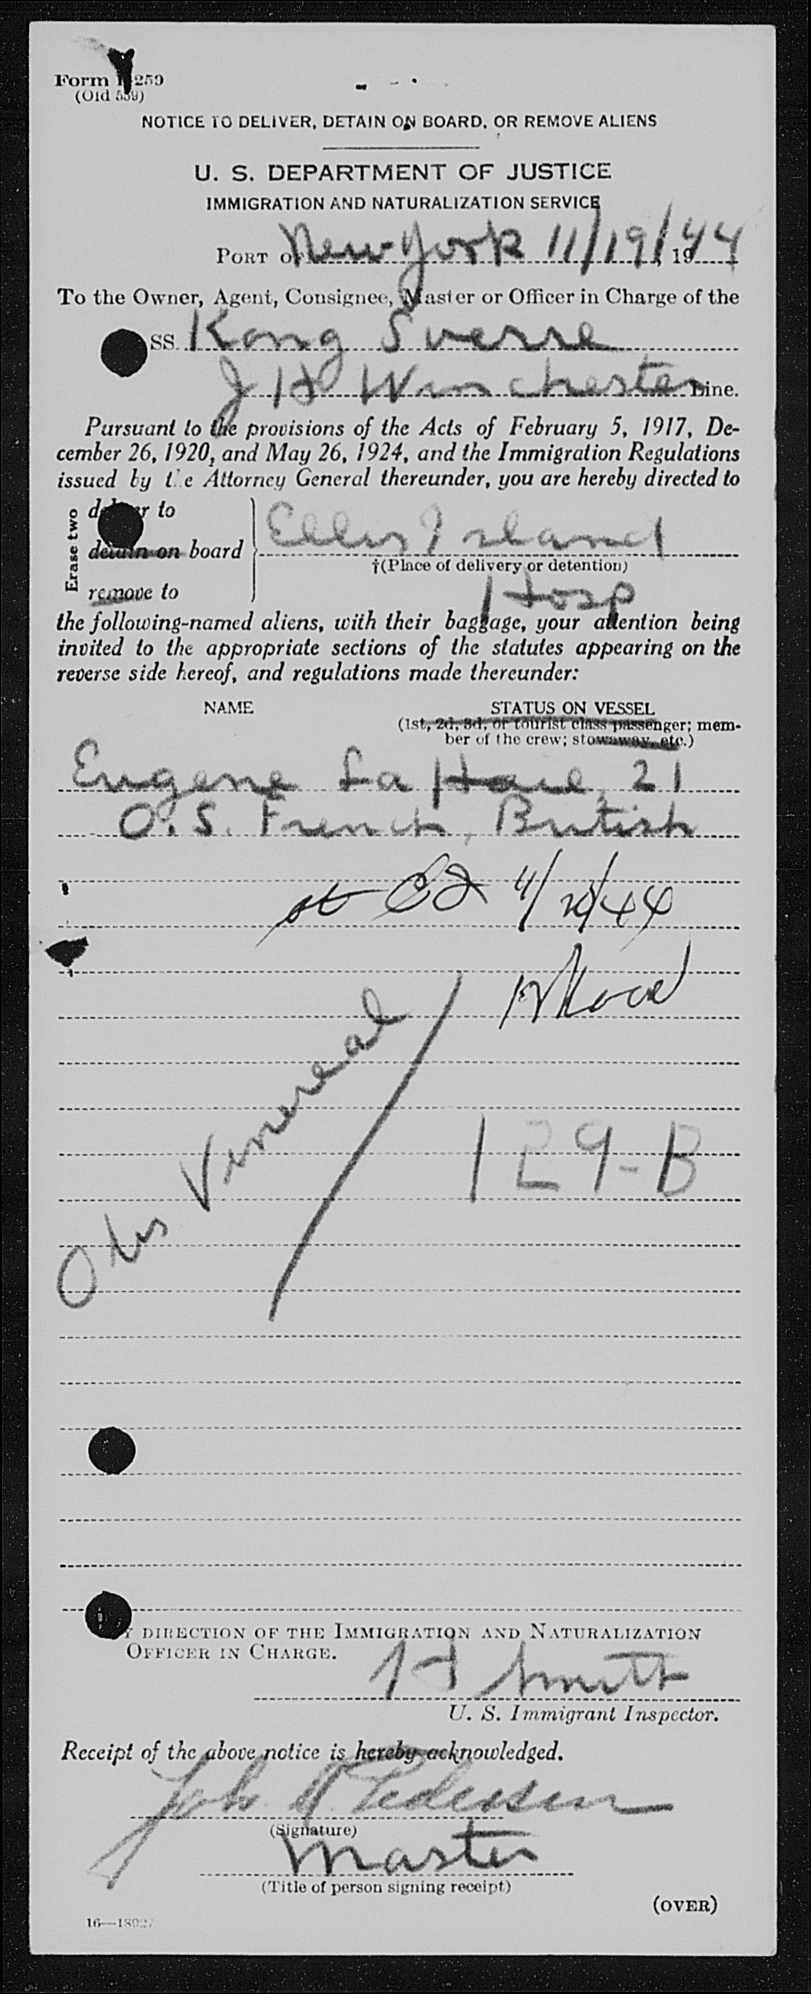 Form I 259
(Old 559)
NOTICE TO DELIVER, DETAIN ON BOARD, OR REMOVE ALIENS
U. S. DEPARTMENT OF JUSTICE
IMMIGRATION AND NATURALIZATION SERVICE
PORT OF New York 11/19/, 1944
To the Owner, Agent, Consignee, Master or Officer in Charge of the
SS. Kong Sverre
J H Winchester Line.
Pursuant to the provisions of the Acts of February 5, 1917, De-
cember 26, 1920, and May 26, 1924, and the Immigration Regulations
issued by the Attorney General thereunder, you are hereby directed to
Erase two
deliver to
detain on board
remove to
Ellis Island
†(Place of delivery or detention)
Hosp
the following-named aliens, with their baggage, your attention being
invited to the appropriate sections of the statutes appearing on the
reverse side hereof, and regulations made thereunder:
NAME STATUS ON VESSEL
(1st, 2d, 3d, or tourist class passenger; mem-
ber of the crew; stowaway, etc.)
Eugene La Haie, 21
O.S. French, British
at EI 11/20/44
129-B
Obs Venereal
BY DIRECTION OF THE IMMIGRATION AND NATURALIZATION
OFFICER IN CHARGE.
H Smith
U. S. Immigrant Inspector.
Receipt of the above notice is hereby acknowledged.
Joh Pedersen
(Signature)
Master
(Title of person signing receipt)
(OVER)